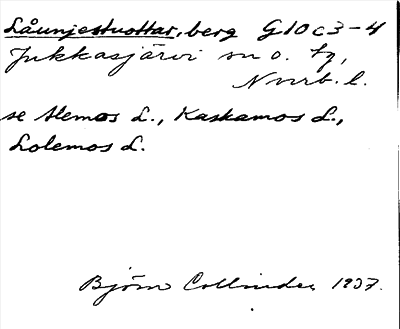 Låunjestuottar, berg G10c3-4
Jukkasjärvi sn o. tg,
Norrb. l.
se Alemos L., Kaskamos L.,
Lolemos L.
Björn Collinder 1937.